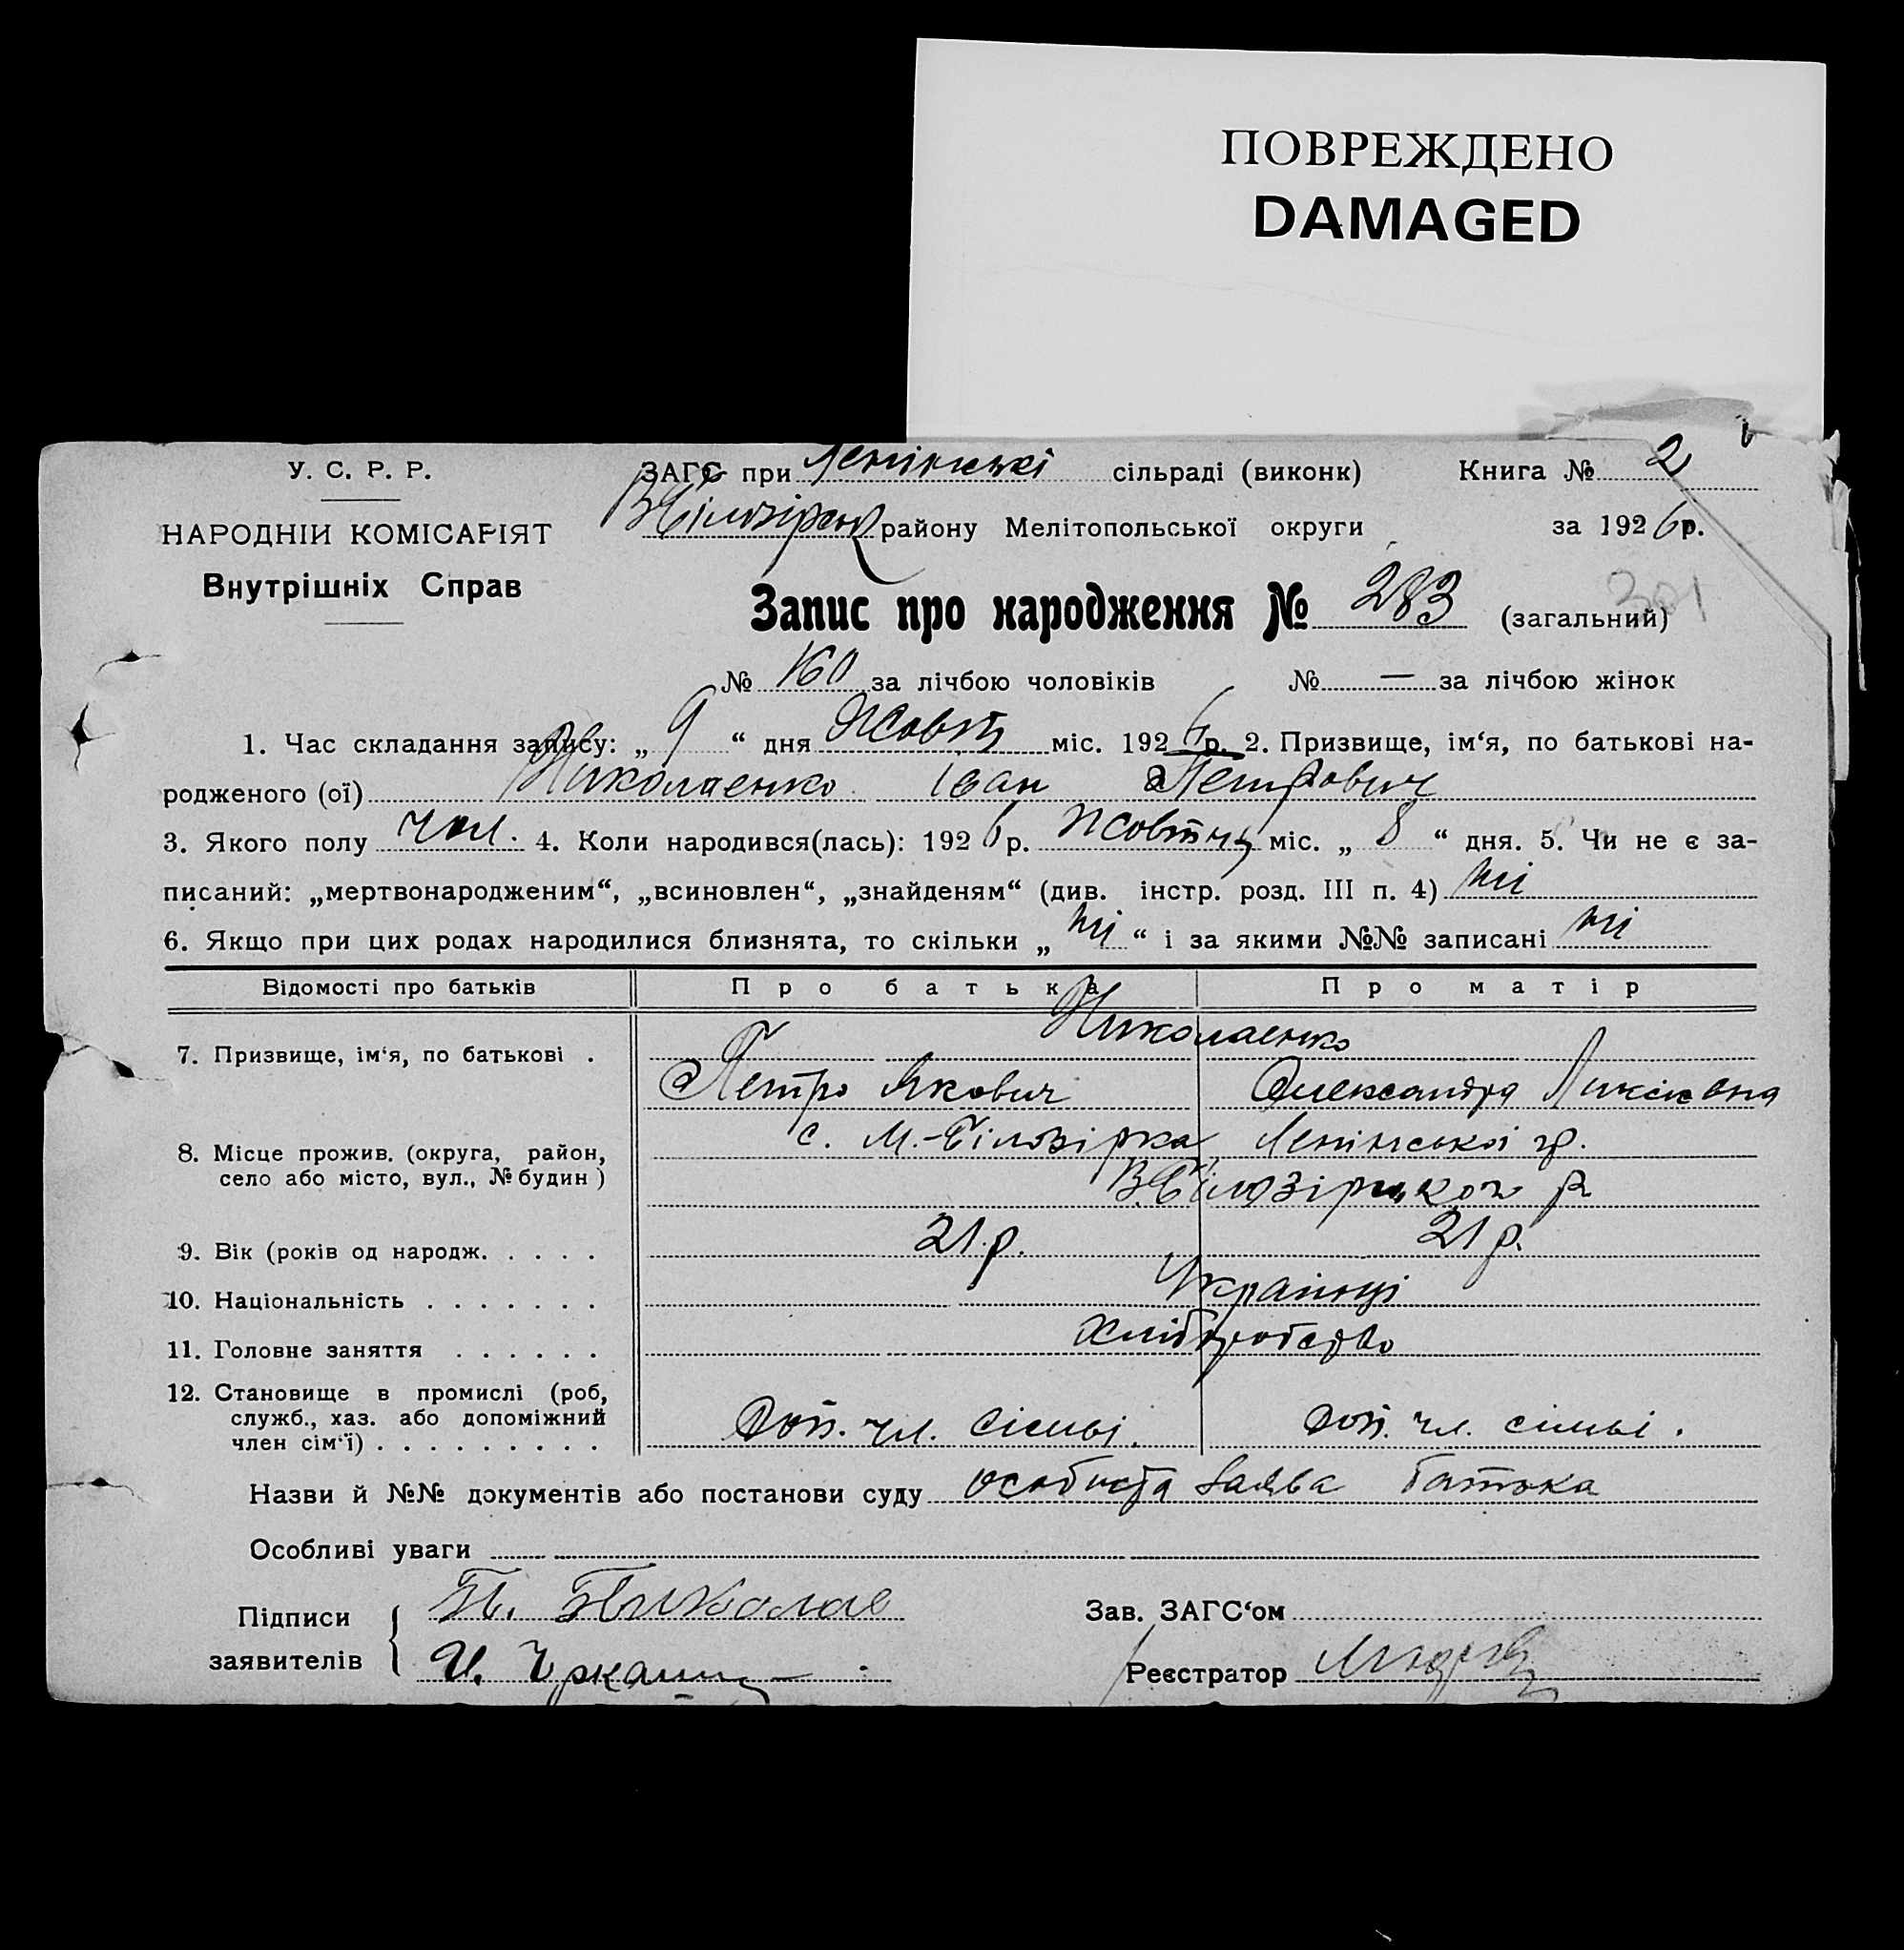 ПОВРЕЖДЕНО
DAMAGED
У. С. Р. Р.
ЗАГС при Ленінські сільраді (виконк) Книга № 2
НАРОДНІЙ КОМІСАРІЯТ
району Мелітопольської округи за 1926 р.
Внутрішніх Справ
Запис про народження № 283 (загальний) 301
№ 160 за лічбою чоловіків № — за лічбою жінок
1. Час складання запису: „ 9 “ дня Жовт міс. 1926 р. 2. Призвище, ім‘я, по батькові на-
родженого (ої) Николаенко Іван Петрович
3. Якого полу чол. 4. Коли народився(лась): 1926 р. Жовтня міс. „ 8 “ дня. 5. Чи не є за-
писаний: „мертвонародженим“, „всиновлен“, „знайденям“ (див. інстр. розд. III п. 4) ні
6. Якщо при цих родах народилися близнята, то скільки „ ні “ і за якими №№ записані ні
Відомості про батьків Про батька Про матір
Николаенко
7. Призвище, ім‘я, по батькові .
Петро Якович Олександра
8. Місце прожив. (округа, район, с. М.-Білозірка Ленінської гр.
село або місто, вул., № будин )
9. Вік (років од народж. . . . . 21 р. 21 р.
10. Національність . . . . . . . Українці
11. Головне заняття . . . . . . Хліборобство
12. Становище в промислі (роб,
служб., хаз. або допоміжний Доп. чл. сімьі. Доп. чл. сімьі.
член сім‘ї) . . . . . . . . . .
Назви й №№ документів або постанови суду особиста заява батька
Особливі уваги
Підписи
Зав. ЗАГС‘ом
заявителів
Реєстратор